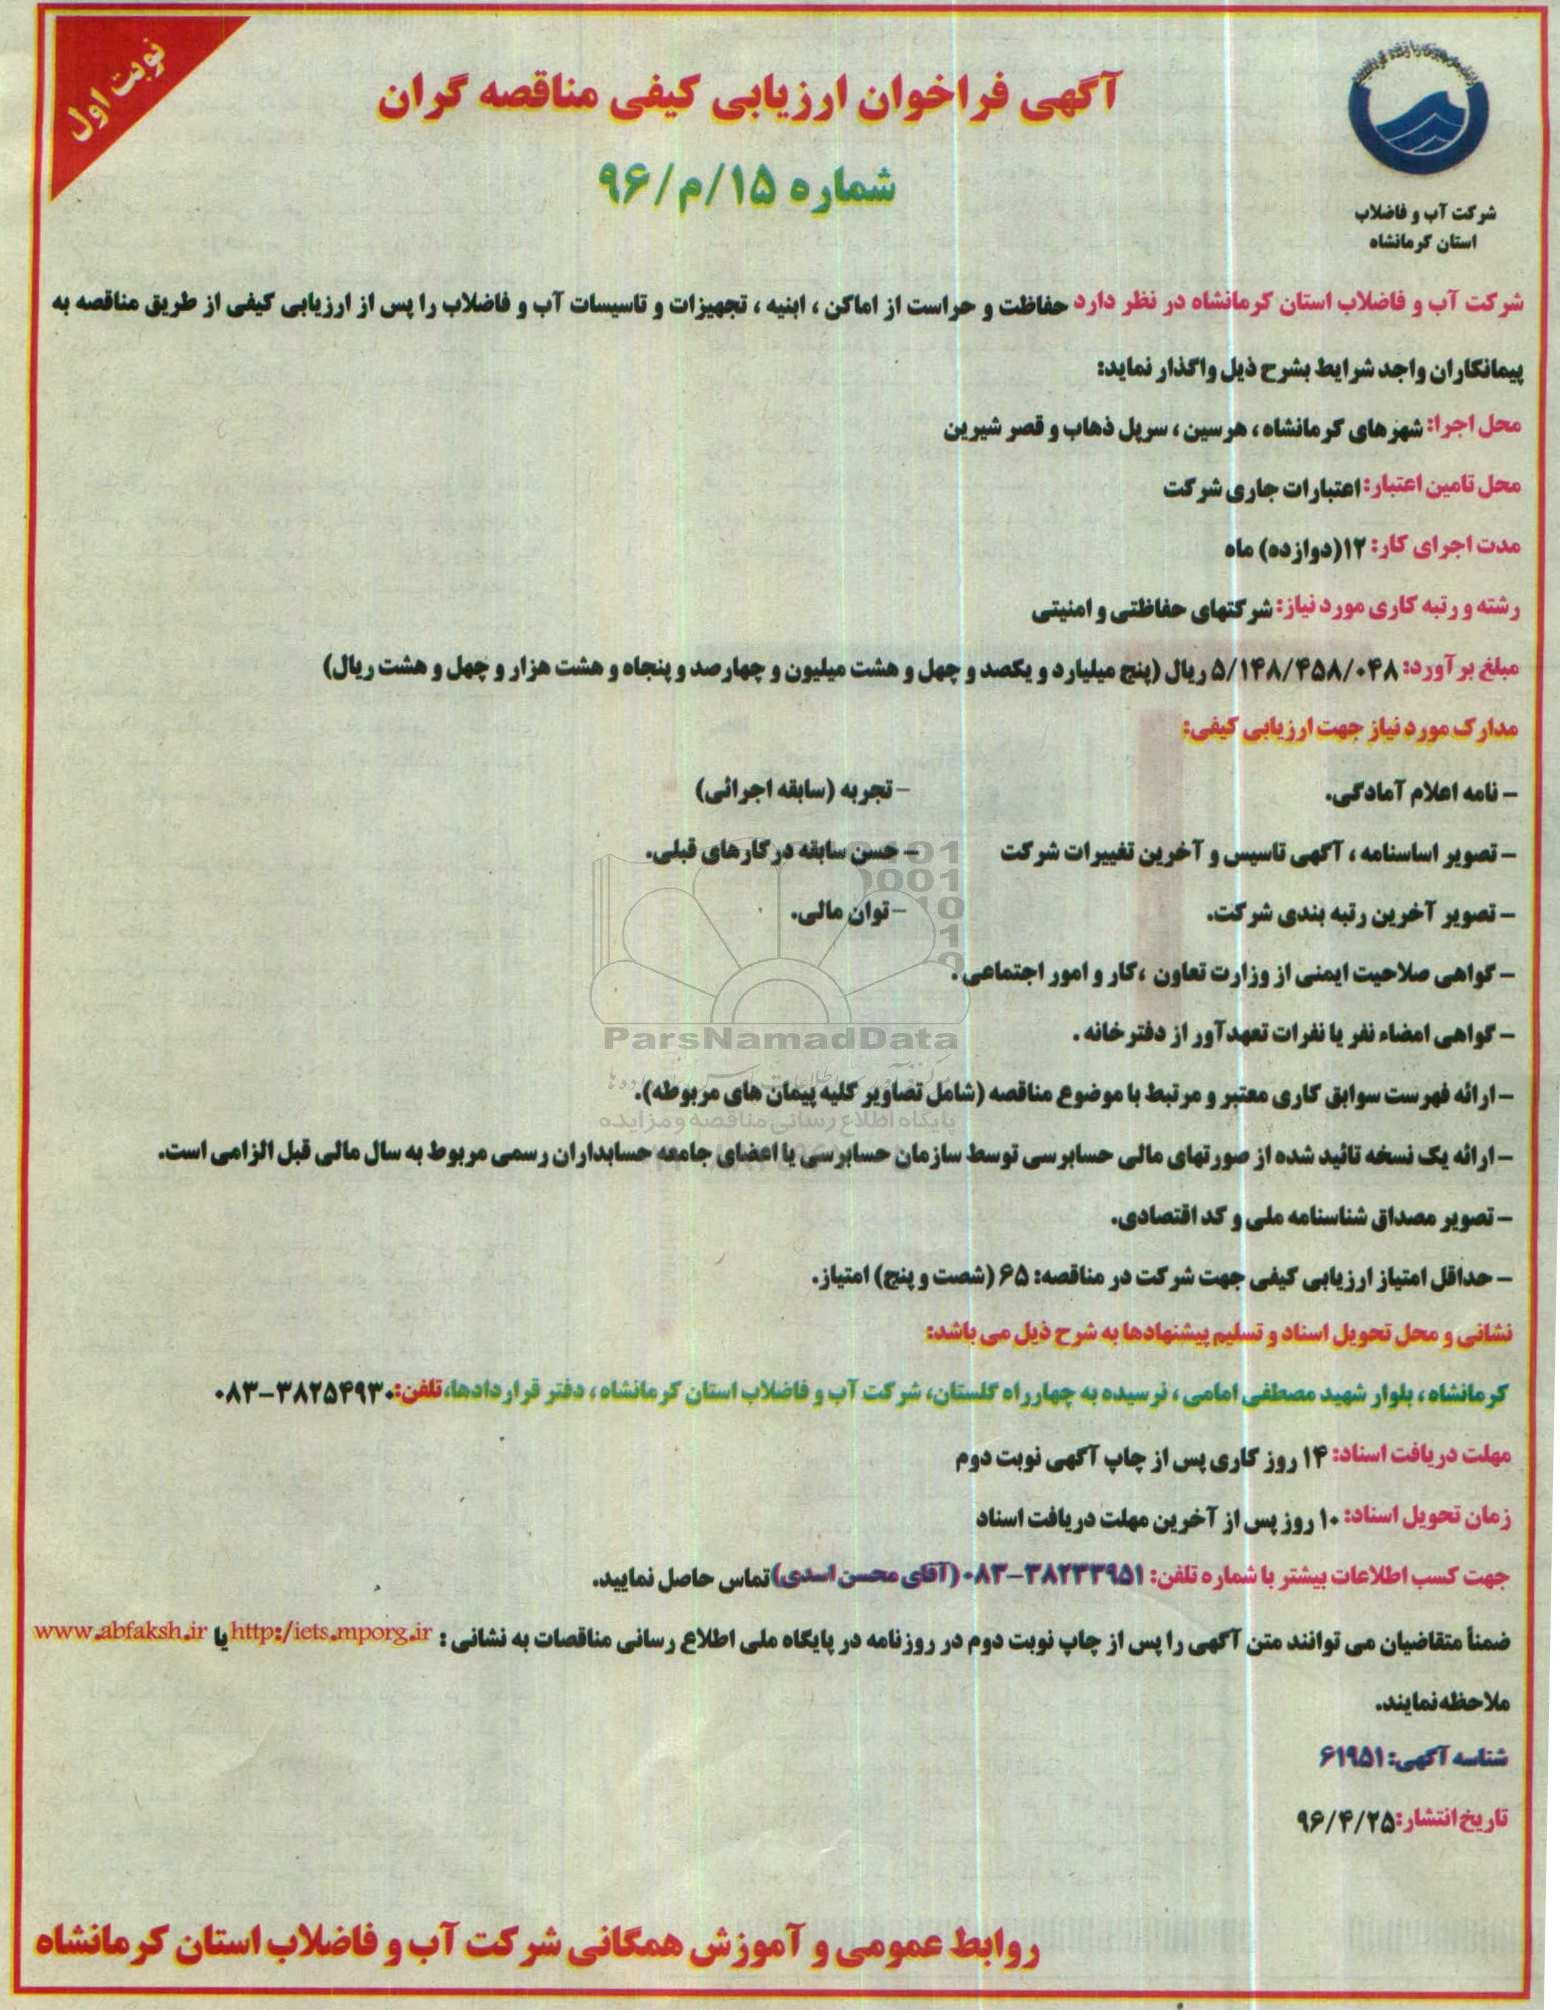 نوبت اول
آگهی فراخوان ارزیابی کیفی مناقصه گران
شماره ۱۵/م/۹۶
شرکت آب و فاضلاب
استان کرمانشاه
شرکت آب و فاضلاب استان کرمانشاه در نظر دارد حفاظت و حراست از اماکن ، ابنیه ، تجهیزات و تاسیسات آب و فاضلاب را پس از ارزیابی کیفی از طریق مناقصه به
پیمانکاران واجد شرایط بشرح ذیل واگذار نماید:
محل اجرا: شهرهای کرمانشاه ، هرسین ، سرپل ذهاب و قصر شیرین
محل تامین اعتبار: اعتبارات جاری شرکت
مدت اجرای کار: ۱۲(دوازده) ماه
رشته و رتبه کاری مورد نیاز: شرکتهای حفاظتی و امنیتی
مبلغ برآورد: ۵/۱۴۸/۴۵۸/۰۴۸ ریال (پنج میلیارد و یکصد و چهل و هشت میلیون و چهارصد و پنجاه و هشت هزار و چهل و هشت ریال)
مدارک مورد نیاز جهت ارزیابی کیفی:
- نامه اعلام آمادگی. - تجربه (سابقه اجرائی)
- تصویر اساسنامه ، آگهی تاسیس و آخرین تغییرات شرکت - حسن سابقه در کارهای قبلی.
- تصویر آخرین رتبه بندی شرکت. - توان مالی.
- گواهی صلاحیت ایمنی از وزارت تعاون ،کار و امور اجتماعی .
- گواهی امضاء نفر یا نفرات تعهدآور از دفترخانه .
- ارائه فهرست سوابق کاری معتبر و مرتبط با موضوع مناقصه (شامل تصاویر کلیه پیمان های مربوطه).
- ارائه یک نسخه تائید شده از صورتهای مالی حسابرسی توسط سازمان حسابرسی یا اعضای جامعه حسابداران رسمی مربوط به سال مالی قبل الزامی است.
- تصویر مصداق شناسنامه ملی و کد اقتصادی.
- حداقل امتیاز ارزیابی کیفی جهت شرکت در مناقصه: ۶۵ (شصت و پنج) امتیاز.
نشانی و محل تحویل اسناد و تسلیم پیشنهادها به شرح ذیل می باشد:
کرمانشاه ، بلوار شهید مصطفی امامی ، نرسیده به چهارراه گلستان، شرکت آب و فاضلاب استان کرمانشاه ، دفتر قراردادها، تلفن: ۳۸۲۵۴۹۳۰-۰۸۳
مهلت دریافت اسناد: ۱۴ روز کاری پس از چاپ آگهی نوبت دوم
زمان تحویل اسناد: ۱۰ روز پس از آخرین مهلت دریافت اسناد
جهت کسب اطلاعات بیشتر با شماره تلفن: ۳۸۲۳۳۹۵۱-۰۸۳ (آقای محسن اسدی) تماس حاصل نمایید.
ضمناً متقاضیان می توانند متن آگهی را پس از چاپ نوبت دوم در روزنامه در پایگاه ملی اطلاع رسانی مناقصات به نشانی : http:/iets.mporg.ir یا www.abfaksh.ir
ملاحظه نمایند.
شناسه آگهی: ۶۱۹۵۱
تاریخ انتشار: ۹۶/۴/۲۵
روابط عمومی و آموزش همگانی شرکت آب و فاضلاب استان کرمانشاه
ParsNamadData
پایگاه اطلاع رسانی مناقصه و مزایده